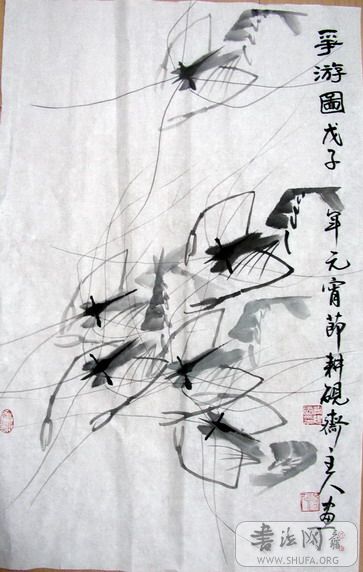 爭游圖戊子年元宵節耕硯齋主人畫
书法网
WWW.SHUFA.ORG